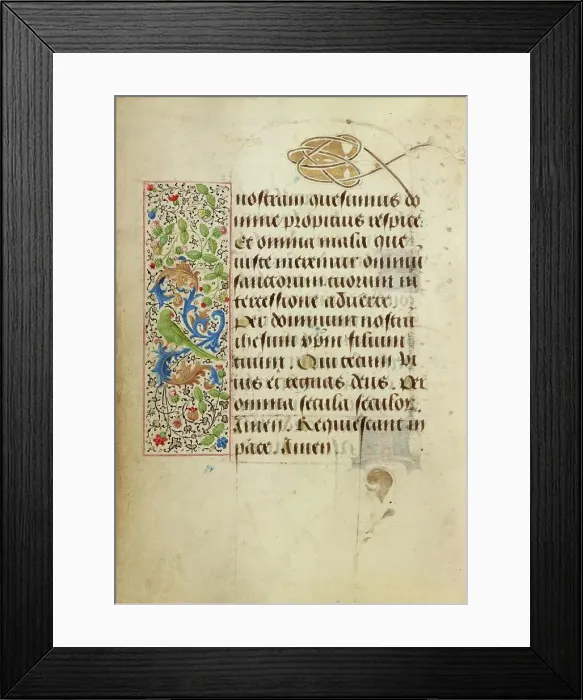 nostram quesumus do
mine propicius respice.
Et omnia mala que
iuste meremur omnium
sanctorum tuorum in
tercessione aduerte.
Per dominum nostru
ihesum xpm filium
tuum. Qui tecum vi
uis et regnas deus. Per
omnia secula seculor.
Amen. Requiescant in
pace. Amen.